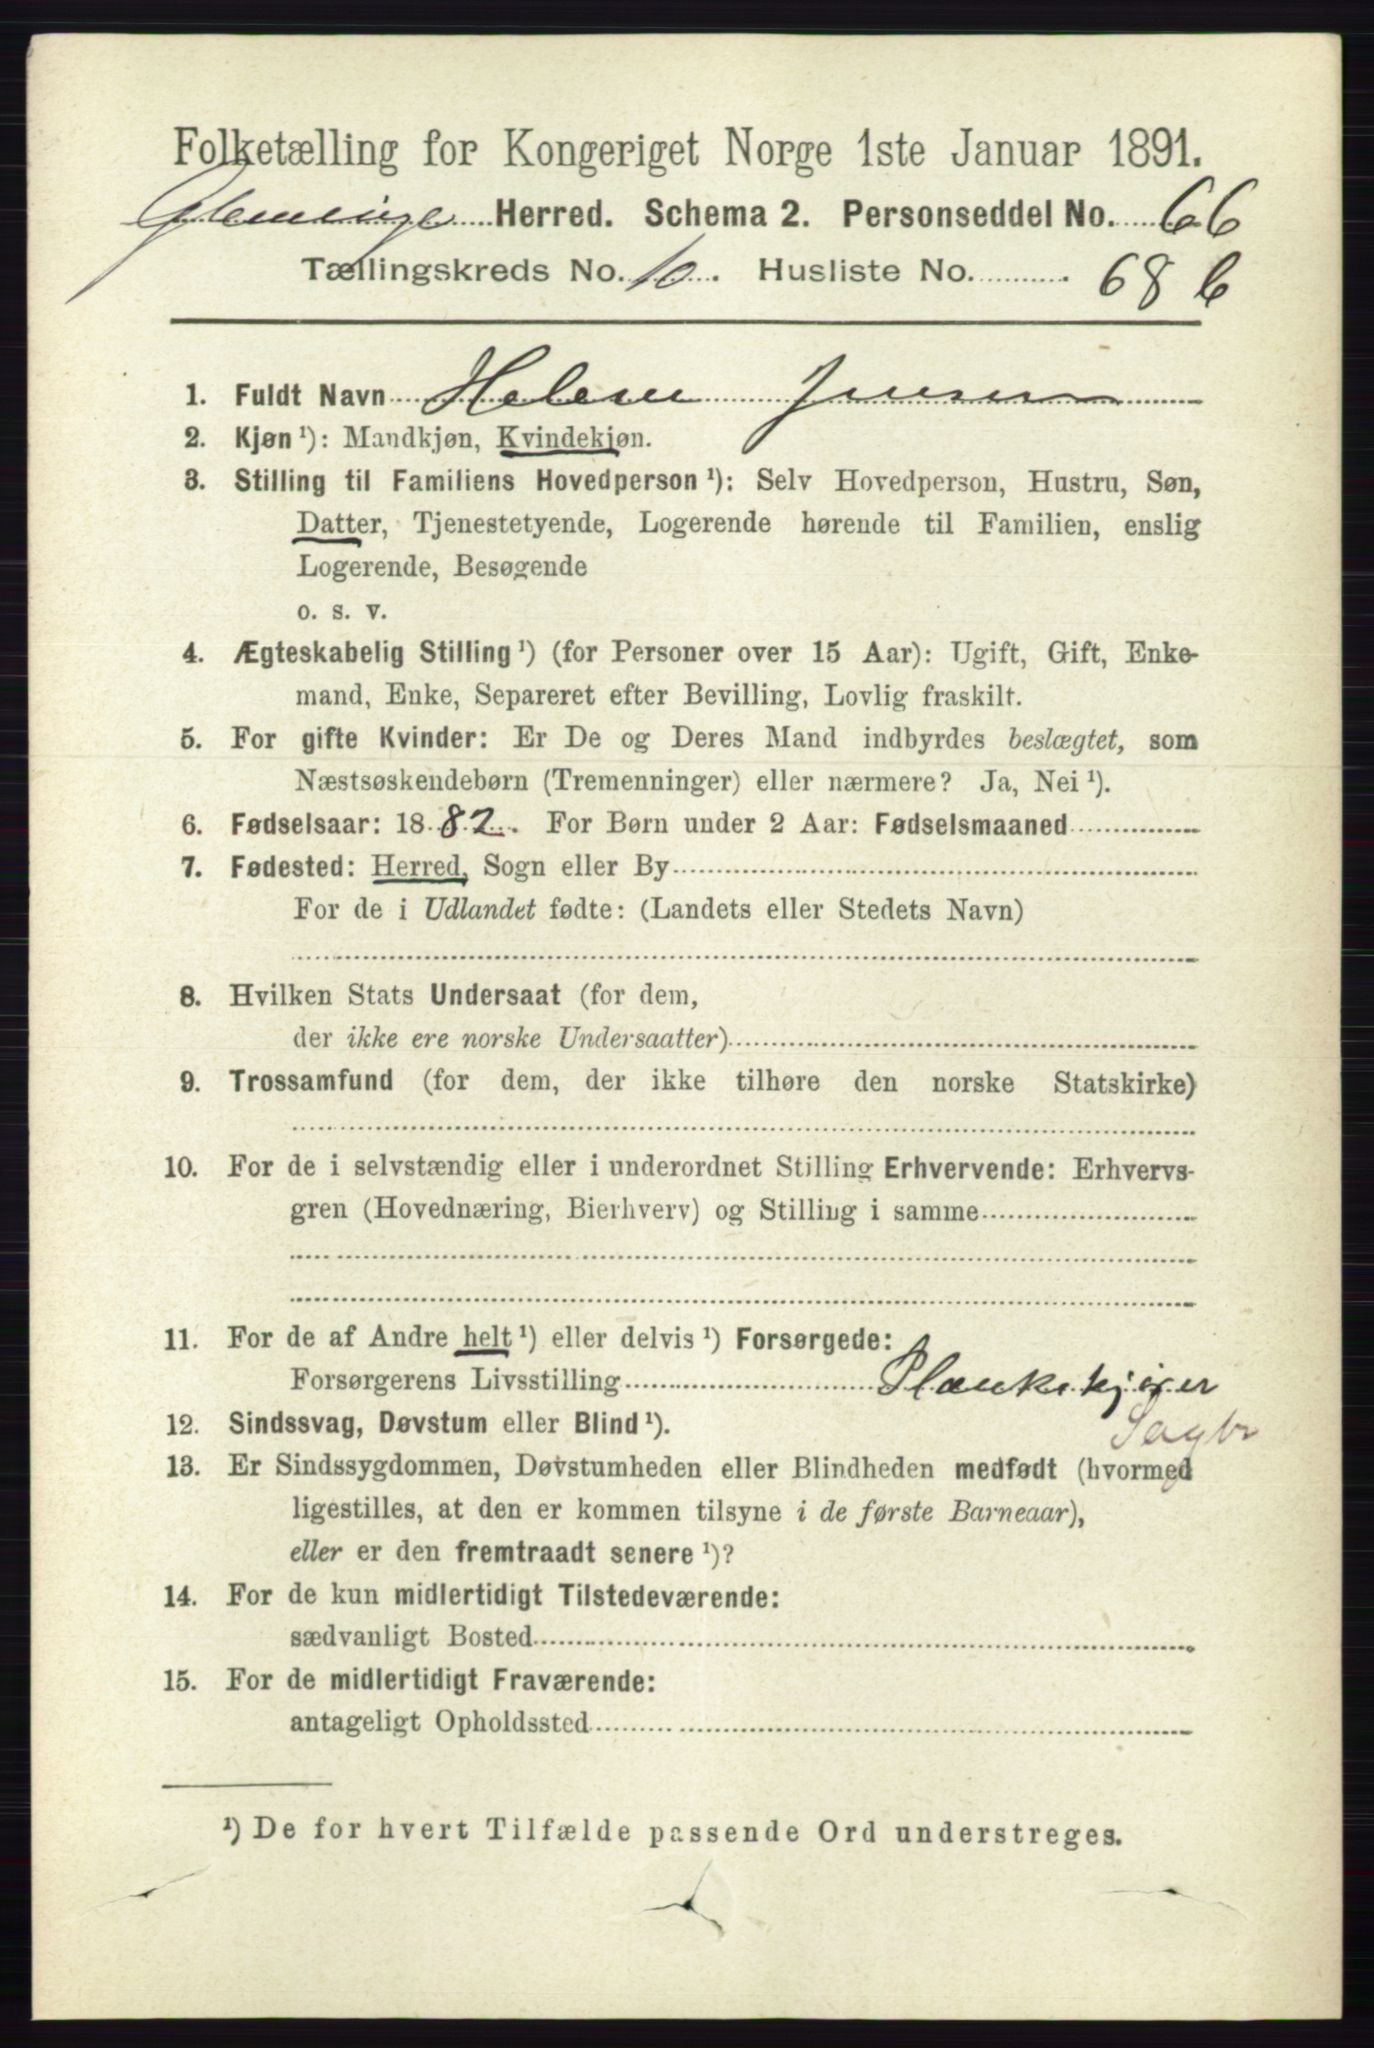 Folketælling for Kongeriget Norge 1ste Januar 1891.
Glemminge Herred. Schema 2. Personseddel No. 66
Tællingskreds No. 10. Husliste No. 68 b
1. Fuldt Navn Helene Jensen
2. Kjøn ¹): Mandkjøn, Kvindekjøn.
3. Stilling til Familiens Hovedperson ¹): Selv Hovedperson, Hustru, Søn,
Datter, Tjenestetyende, Logerende hørende til Familien, enslig
Logerende, Besøgende
o. s. v.
4. Ægteskabelig Stilling ¹) (for Personer over 15 Aar): Ugift, Gift, Enke-
mand, Enke, Separeret efter Bevilling, Lovlig fraskilt.
5. For gifte Kvinder: Er De og Deres Mand indbyrdes beslægtet, som
Næstsøskendebørn (Tremenninger) eller nærmere? Ja, Nei ¹).
6. Fødselsaar: 1882. For Børn under 2 Aar: Fødselsmaaned
7. Fødested: Herred, Sogn eller By
For de i Udlandet fødte: (Landets eller Stedets Navn)
8. Hvilken Stats Undersaat (for dem,
der ikke ere norske Undersaatter)
9. Trossamfund (for dem, der ikke tilhøre den norske Statskirke)
10. For de i selvstændig eller i underordnet Stilling Erhvervende: Erhvervs-
gren (Hovednæring, Bierhverv) og Stilling i samme
11. For de af Andre helt ¹) eller delvis ¹) Forsørgede:
Forsørgerens Livsstilling Plankekjører
Sagbr
12. Sindssvag, Døvstum eller Blind ¹).
13. Er Sindssygdommen, Døvstumheden eller Blindheden medfødt (hvormed
ligestilles, at den er kommen tilsyne i de første Barneaar),
eller er den fremtraadt senere ¹)?
14. For de kun midlertidigt Tilstedeværende:
sædvanligt Bosted
15. For de midlertidigt Fraværende:
antageligt Opholdssted
¹) De for hvert Tilfælde passende Ord understreges.